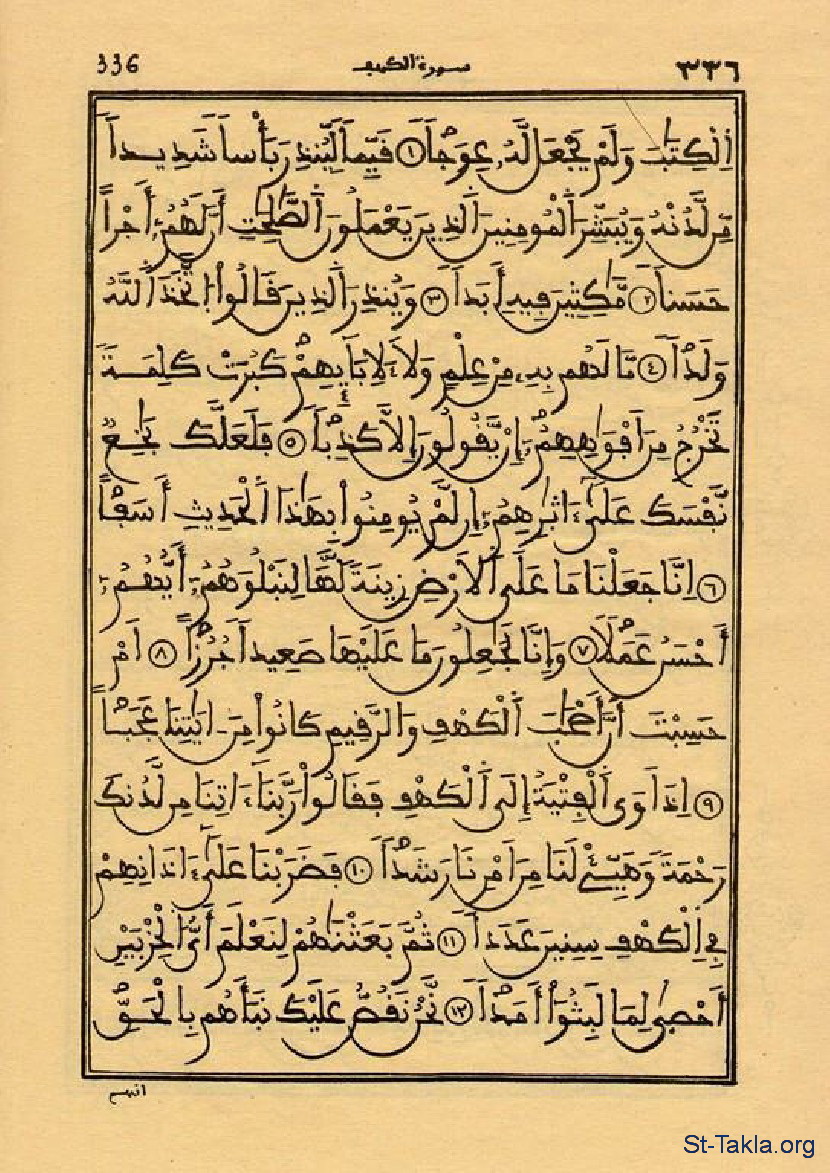 336 سورة الكهف ٣٣٦
اَ۬لْكِتَٰبَ وَلَمْ يَجْعَل لَّهُۥ عِوَجاً ١ قَيِّماً لِّيُنذِرَ بَأْساً شَدِيداً
مِّن لَّدُنْهُ وَيُبَشِّرَ اَ۬لْمُومِنِينَ اَ۬لذِينَ يَعْمَلُونَ اَ۬لصَّٰلِحَٰتِ أَنَّ لَهُمُۥٓ أَجْراً
حَسَناً ٢ مَّٰكِثِينَ فِيهِ أَبَداً ٣ وَيُنذِرَ اَ۬لذِينَ قَالُواْ اُ۪تَّخَذَ اَ۬للَّهُ
وَلَداً ٤ مَّا لَهُم بِهِۦ مِنْ عِلْمٍ وَلَا لِأٓبَآئِهِمْ كَبُرَتْ كَلِمَةً
تَخْرُجُ مِنَ اَفْوَٰهِهِمُۥٓ إِنْ يَّقُولُونَ إِلَّا كَذِباً ٥ فَلَعَلَّكَ بَٰخِعٌ
نَّفْسَكَ عَلَىٰٓ ءَاثٰ۪رِهِمُۥٓ إِن لَّمْ يُومِنُواْ بِهَٰذَا اَ۬لْحَدِيثِ أَسَفاً
٦ اِنَّا جَعَلْنَا مَا عَلَى اَ۬لَارْضِ زِينَةً لَّهَا لِنَبْلُوَهُمُۥٓ أَيُّهُمُۥٓ
أَحْسَنُ عَمَلاً ٧ وَإِنَّا لَجَٰعِلُونَ مَا عَلَيْهَا صَعِيداً جُرُزاً ٨ اَمْ
حَسِبْتَ أَنَّ أَصْحَٰبَ اَ۬لْكَهْفِ وَالرَّقِيمِ كَانُواْ مِنَ ءَايَٰتِنَا عَجَباً
٩ اِذَ اَوَى اَ۬لْفِتْيَةُ إِلَى اَ۬لْكَهْفِ فَقَالُواْ رَبَّنَآ ءَاتِنَا مِن لَّدُنكَ
رَحْمَةً وَهَيِّئْ لَنَا مِنَ اَمْرِنَا رَشَداً ١٠ فَضَرَبْنَا عَلَىٰٓ ءَاذَانِهِمْ
فِے اِ۬لْكَهْفِ سِنِينَ عَدَداً ١١ ثُمَّ بَعَثْنَٰهُمْ لِنَعْلَمَ أَيُّ اُ۬لْحِزْبَيْنِ
أَحْصَىٰ لِمَا لَبِثُواْ أَمَداً ١٢ نَّحْنُ نَقُصُّ عَلَيْكَ نَبَأَهُم بِالْحَقِّ
انهم
St-Takla.org